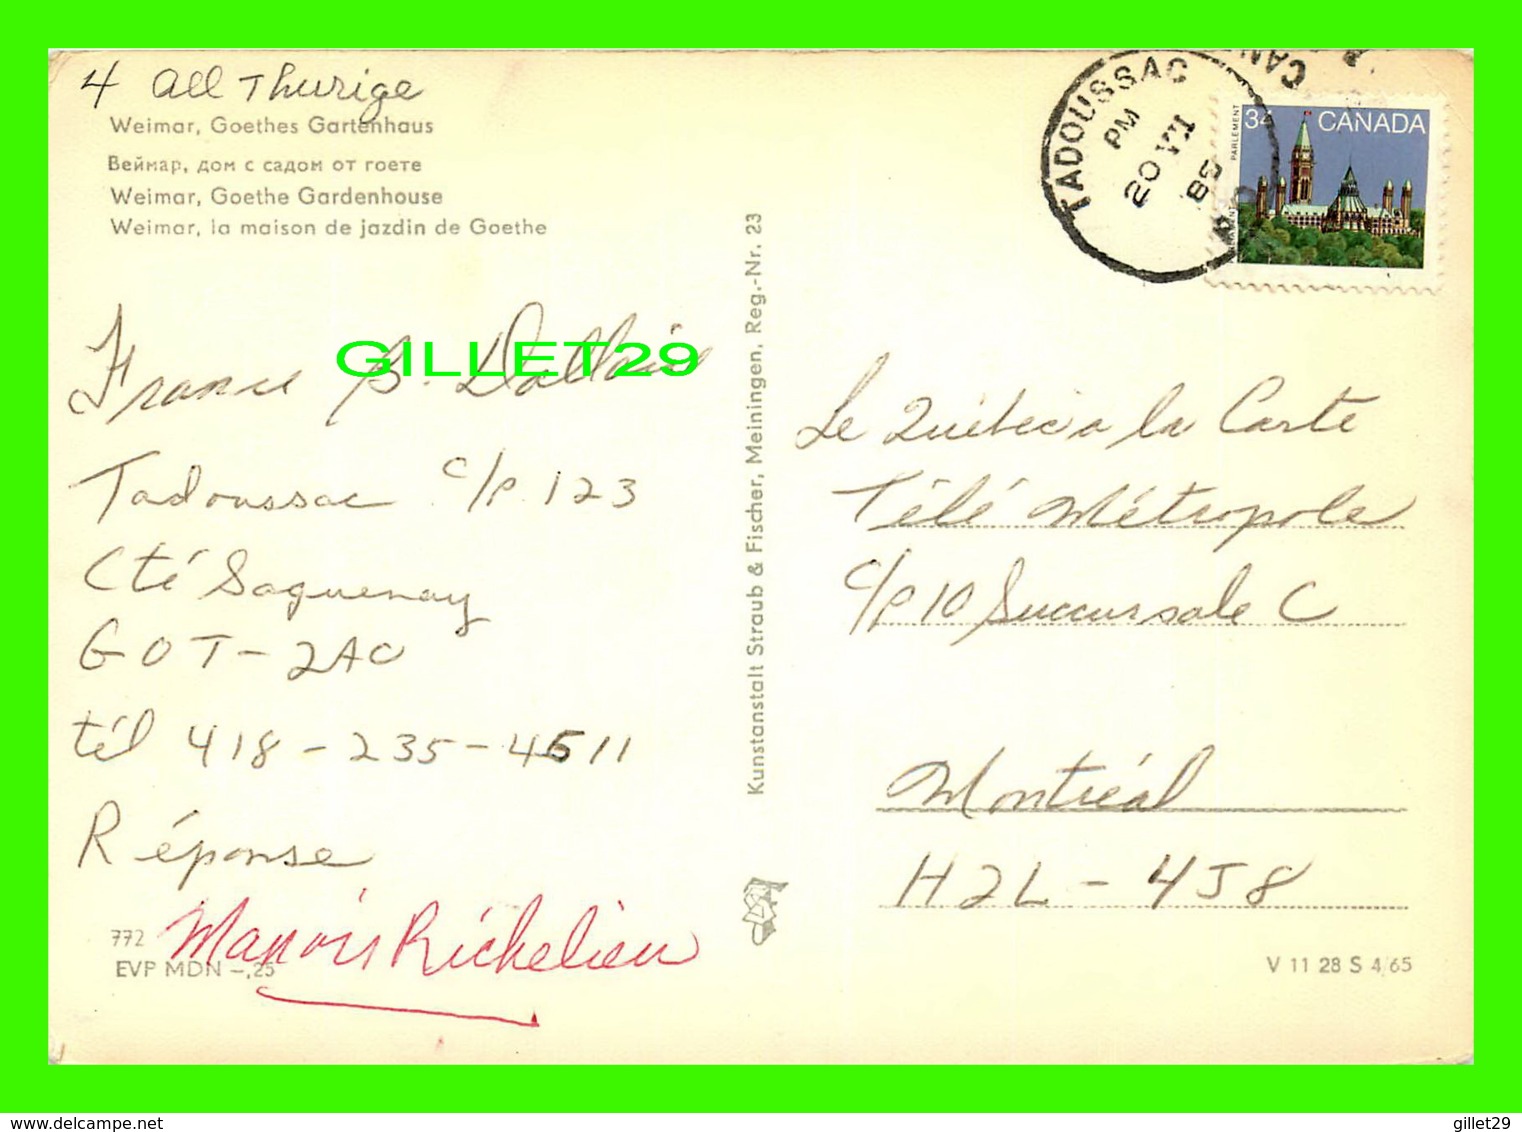 4 all Thurige
Weimar, Goethes Gartenhaus
Веймар, дом с садом от гоете
Weimar, Goethe Gardenhouse
Weimar, la maison de jazdin de Goethe
France B. Dallaire
Tadoussac c/p. 123
Cté Saguenay
G0T-2A0
tél 418-235-4511
Réponse
Manoir Richelieu
772
EVP MDN -,25
Kunstanstalt Straub & Fischer, Meiningen, Reg.-Nr. 23
TADOUSSAC
PM
20 VI
85
CAN
34 CANADA
PARLEMENT
Le Québec a la Carte
Télé Métropole
C/P 10 Succursale C
Montréal
H2L-4J8
V 11 28 S 4/65
GILLET29
gillet29